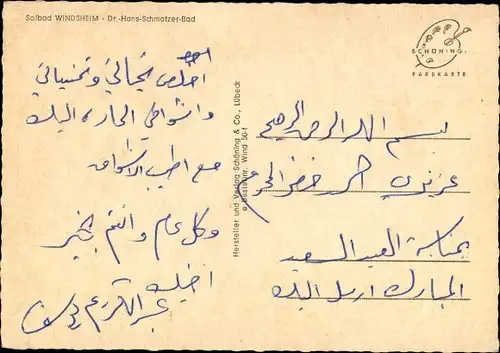 Solbad WINDSHEIM - Dr.-Hans-Schmotzer-Bad
SCHÖNING
FARBKARTE
Hersteller und Verlag Schöning & Co., Lübeck
Bestellnr. Wind 50 f
بسم الله الرحمن الرحيم
عزيزي خضر المحترم
بمناسبة العيد السعيد
المبارك ارسل اليك
اخلص تحياتي وتمنياتي
واشواقي الحارة اليك
مع اطيب الاشواق
وكل عام وانتم بخير
اخيك
عبد الكريم يوسف